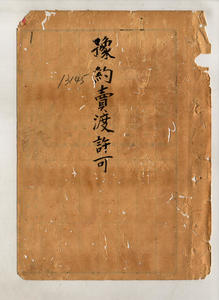 豫約賣渡許可
13145